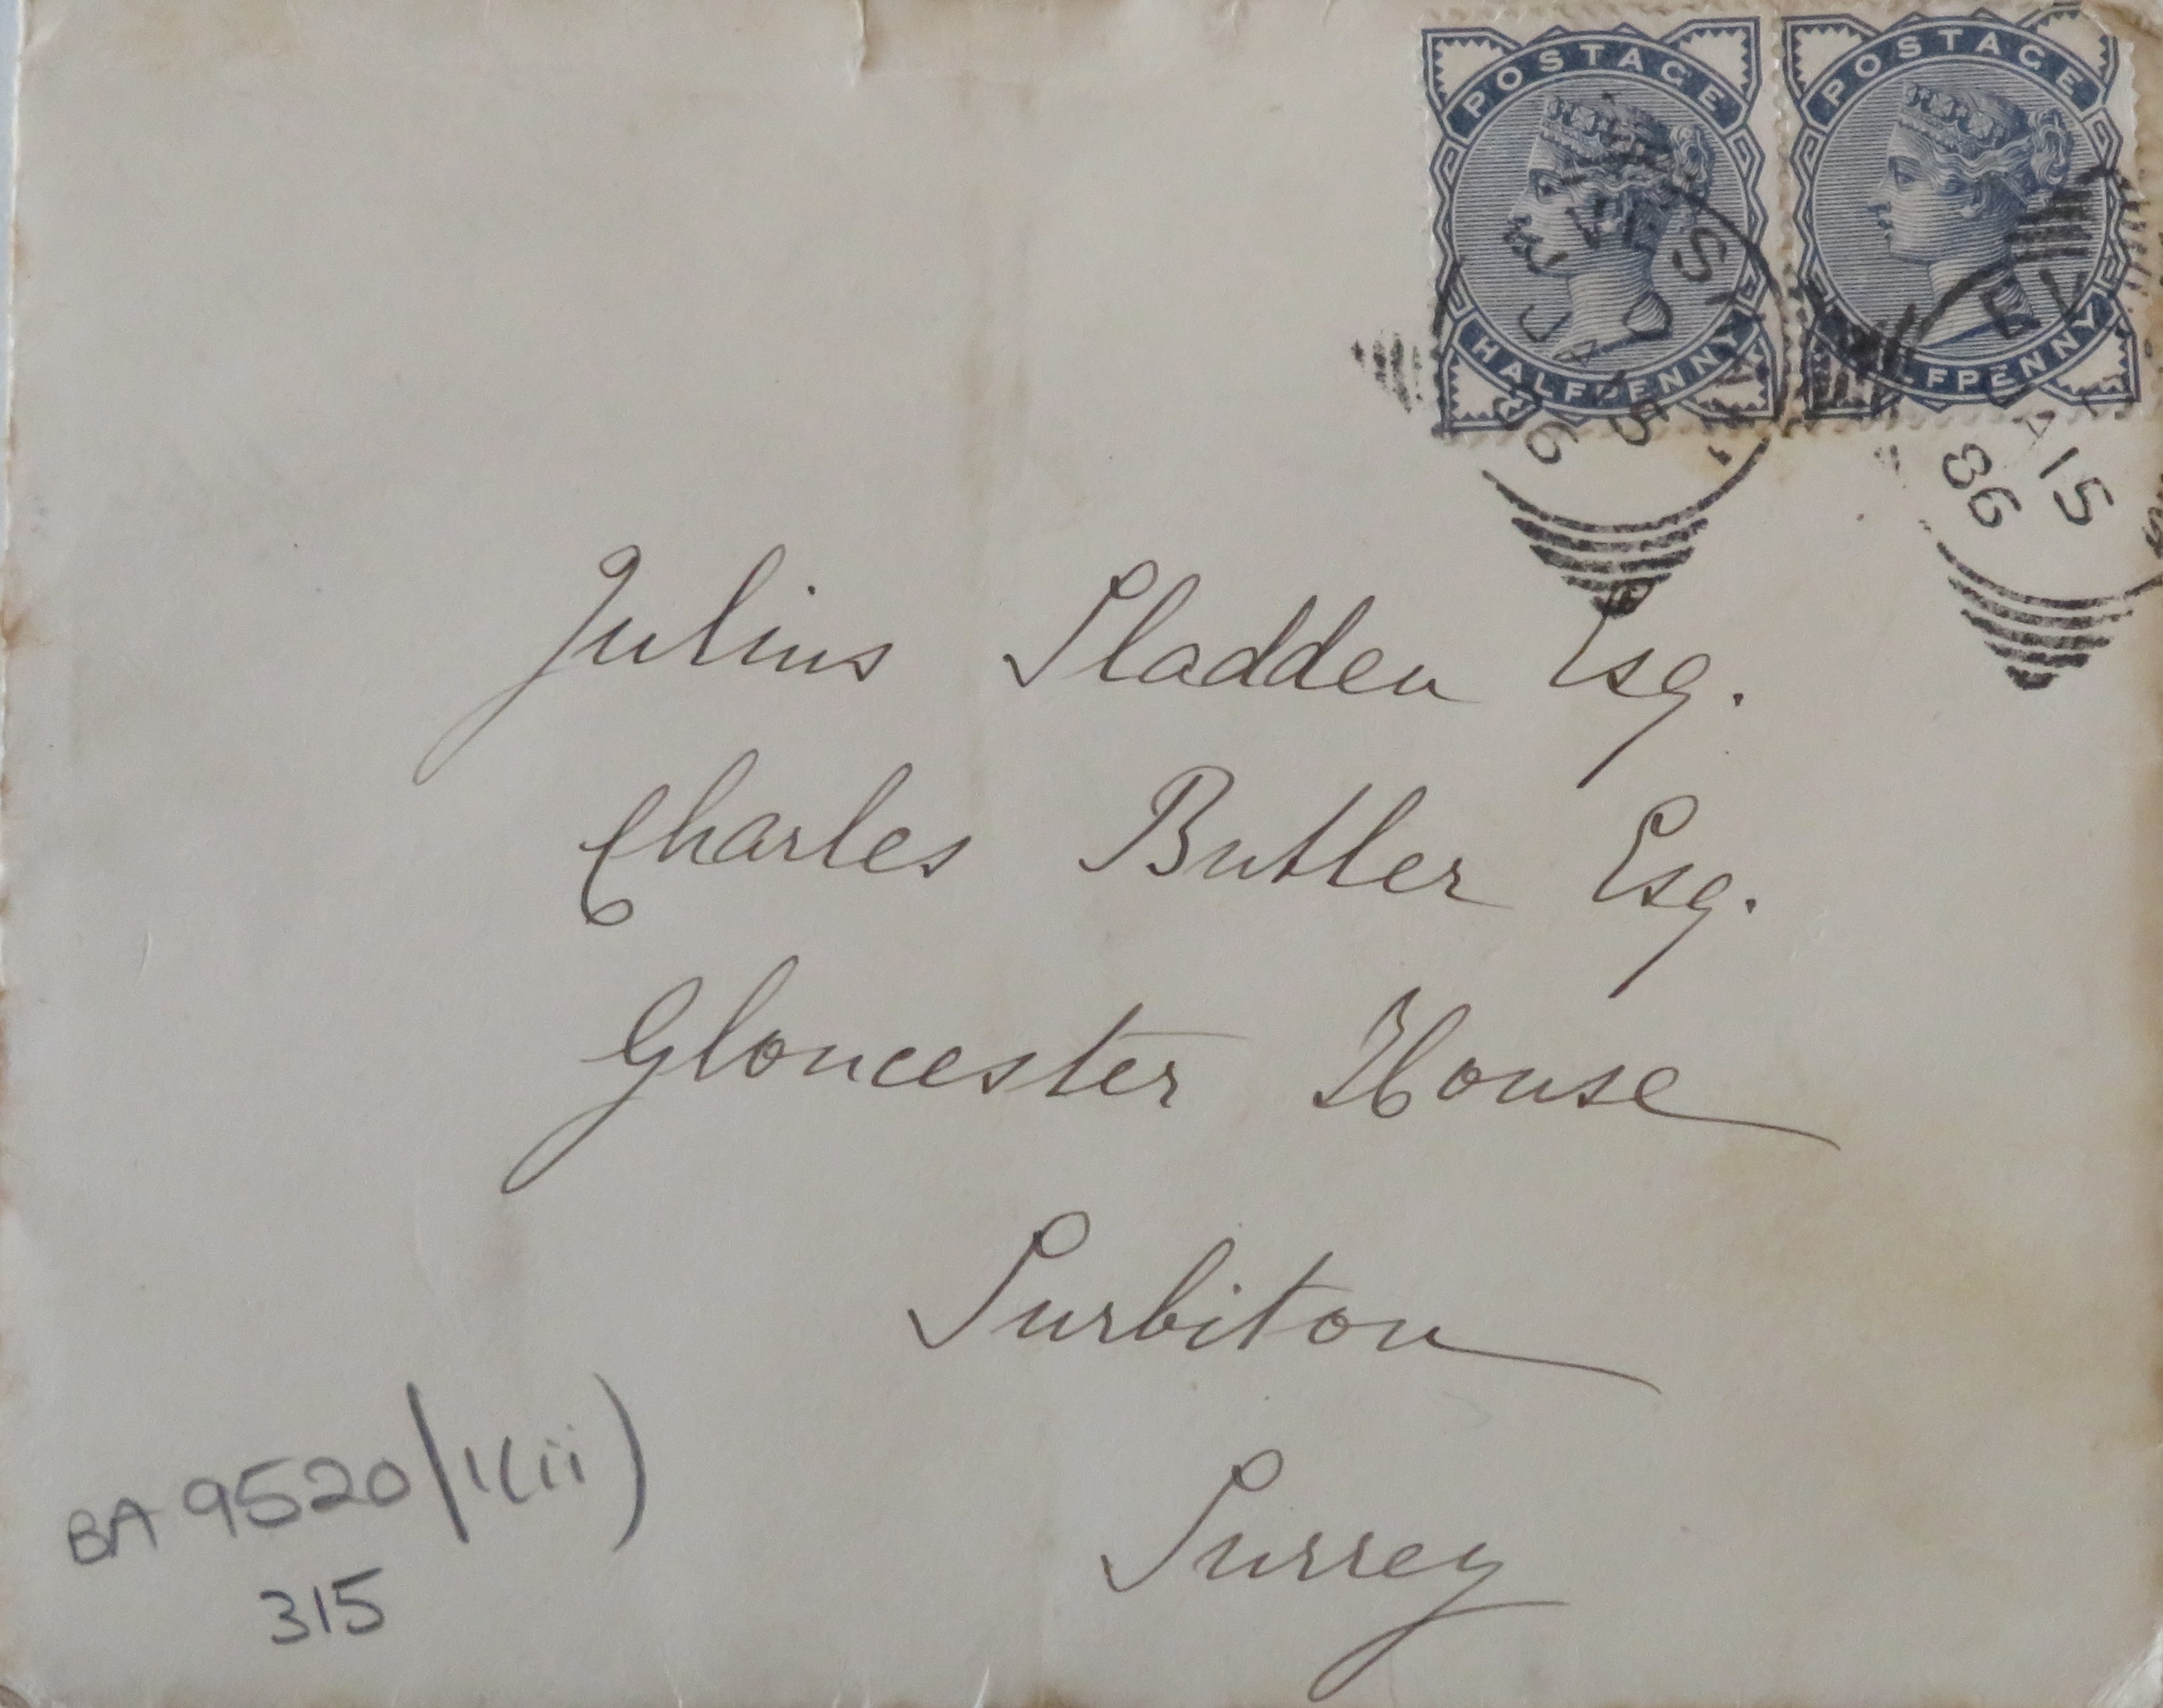 POSTAGE POSTAGE
HALFPENNY HALFPENNY
EV
A15
86
Julius Sladden Esq.
Charles Butler Esq.
Gloucester House
Surbiton
Surrey
BA 9520/1(ii)
315